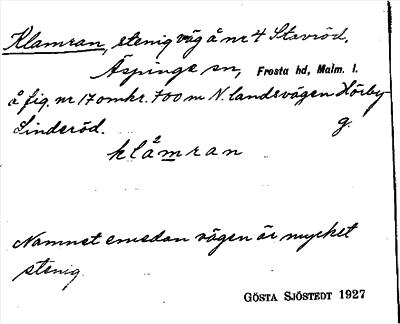 Klamran, stenig väg å nr 4 Stavröd,
Äspinge sn, Frosta hd, Malm. l.
å fig. nr 17 omkr. 700 m N. landsvägen Hörby-
Linderöd. g.
klåmran
Namnet emedan vägen är mycket
stenig.
GÖSTA SJÖSTEDT 1927